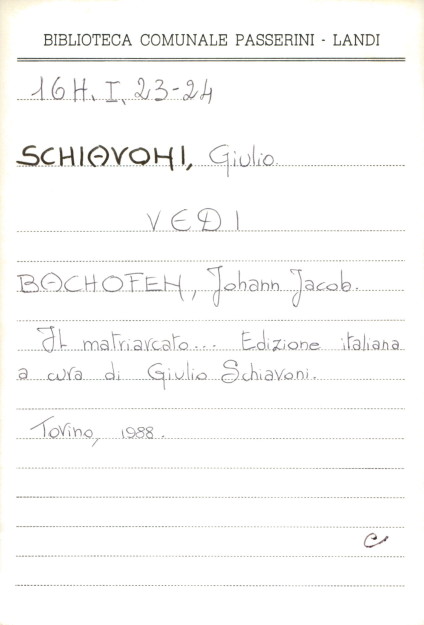 BIBLIOTECA COMUNALE PASSERINI - LANDI
16H. I, 23-24
SCHIAVONI, Giulio
VEDI
BACHOFEN, Johann Jacob.
Il matriarcato... Edizione italiana
a cura di Giulio Schiavoni.
Torino, 1988.